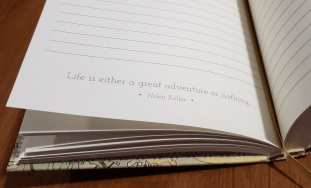 Life is either a great adventure or nothing.
• Helen Keller •